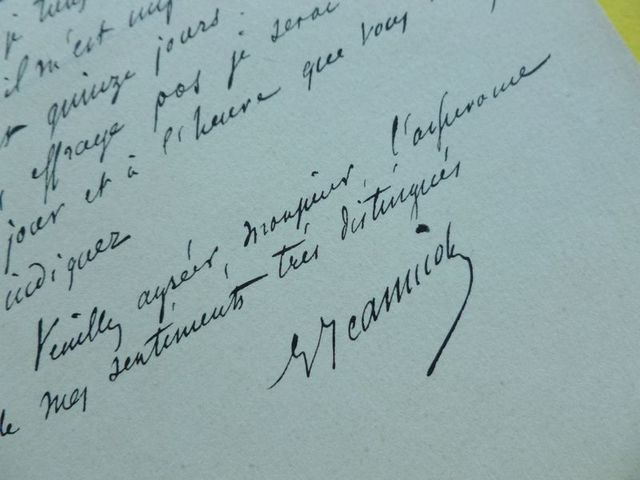 il m'est imp
quinze jours.
effraye pas je serai
jour et à l'heure que vous
indiquez
Veuillez agréer, monsieur, l'assurance
de mes sentiments très distingués